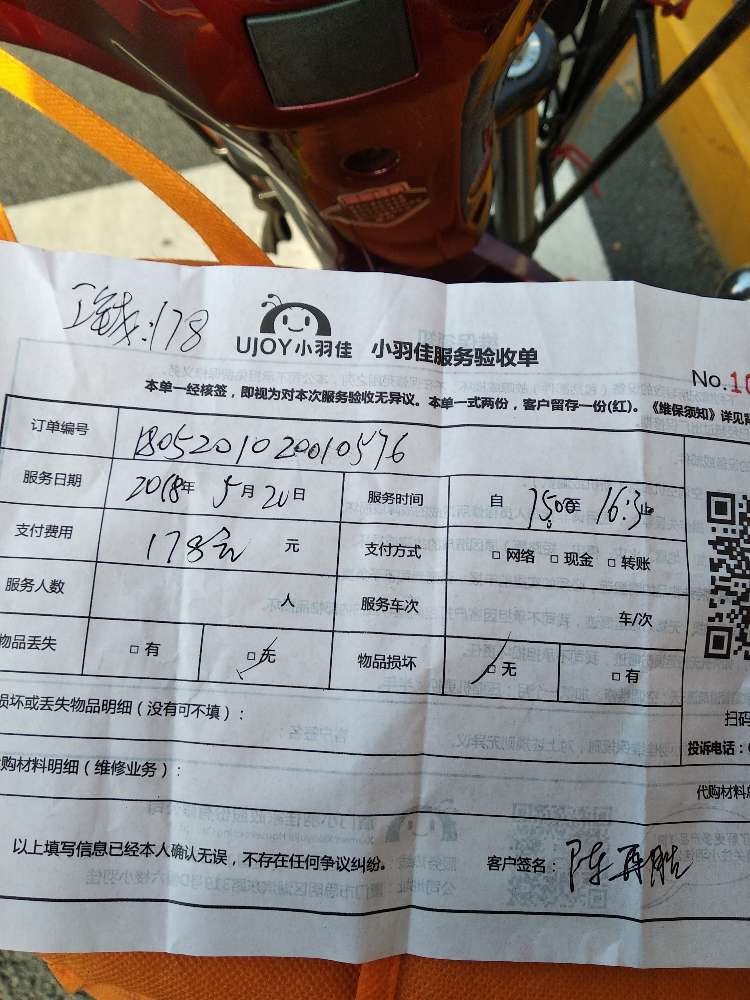 工钱:178
UJOY小羽佳 小羽佳服务验收单
No.10
本单一经核签，即视为对本次服务验收无异议。本单一式两份，客户留存一份(红)。《维保须知》详见背
订单编号 1805201020010576
服务日期 2018年 5月20日 服务时间 自 15:00至 16:30止
支付费用 178元 元 支付方式 □ 网络 □ 现金 □ 转账
服务人数 人 服务车次 车/次
物品丢失 □ 有 □ 无 物品损坏 □ 无 □ 有
损坏或丢失物品明细（没有可不填）：
扫码
投诉电话：
购材料明细（维修业务）：
代购材料总
以上填写信息已经本人确认无误，不存在任何争议纠纷。 客户签名：陈再胜